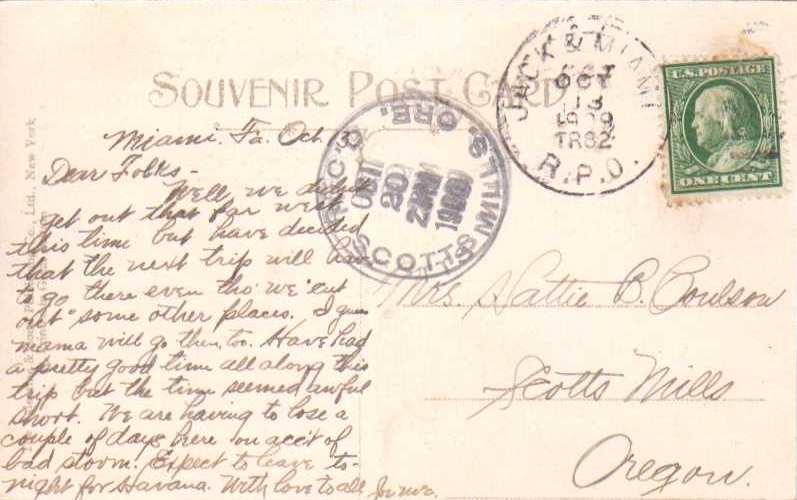 SOUVENIR POST CARD
Miami, Fa. Oct.
Dear Folks -
Well, we didn't
get out that far west
this time but have decided
that the next trip will have
to go there even tho' we "cut
out" some other places. I guess
mama will go then, too. Have had
a pretty good time all along this
trip but the time seemed awful
short. We are having to lose a
couple of days here on acc't of
bad storm. Expect to leave to-
night for Havana. With love to all
Mrs. Hattie B. Coulson
Scotts Mills
Oregon.
JACK & MIAMI
OCT
13
1909
TR82
R.P.O.
REC'D
SCOTTS MILLS, ORE.
20
U.S. POSTAGE
ONE CENT
Co., Ltd., New York